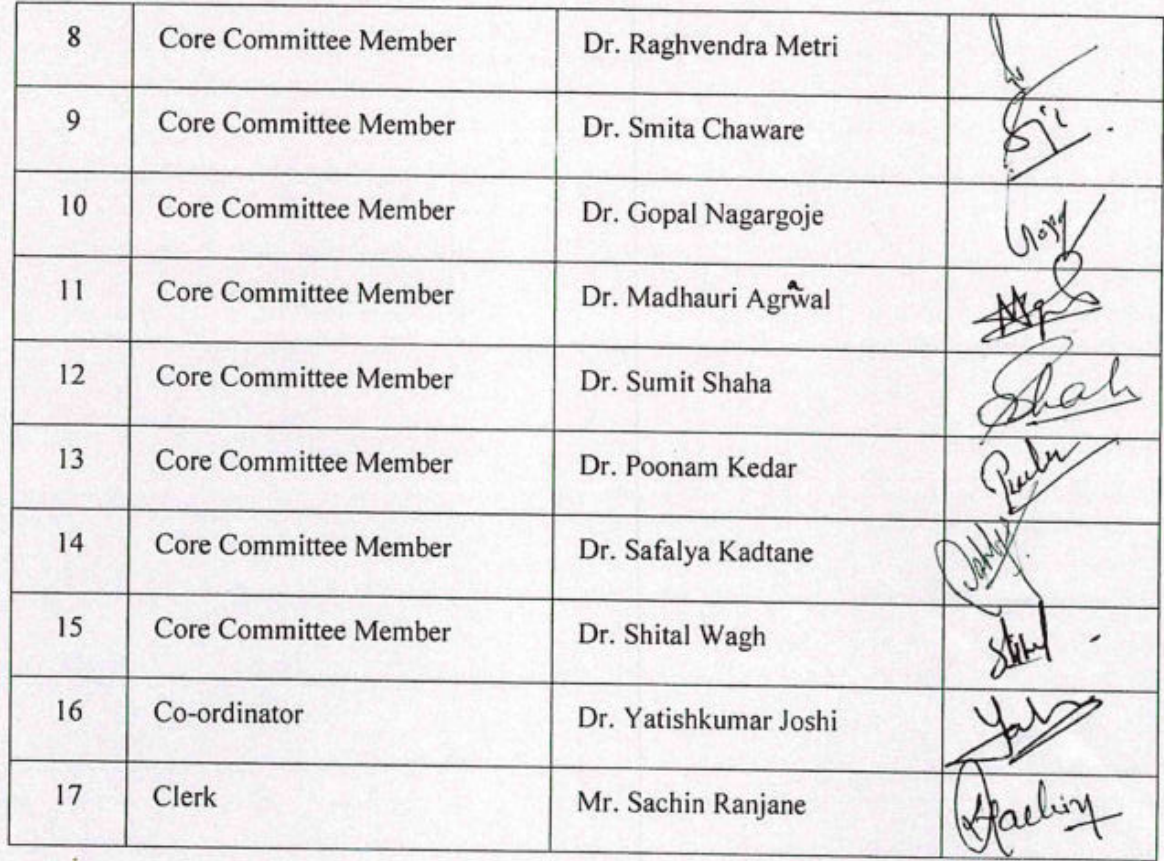 8 Core Committee Member Dr. Raghvendra Metri
9 Core Committee Member Dr. Smita Chaware
10 Core Committee Member Dr. Gopal Nagargoje
11 Core Committee Member Dr. Madhauri Agrawal
12 Core Committee Member Dr. Sumit Shaha Shah
13 Core Committee Member Dr. Poonam Kedar
14 Core Committee Member Dr. Safalya Kadtane
15 Core Committee Member Dr. Shital Wagh
16 Co-ordinator Dr. Yatishkumar Joshi
17 Clerk Mr. Sachin Ranjane